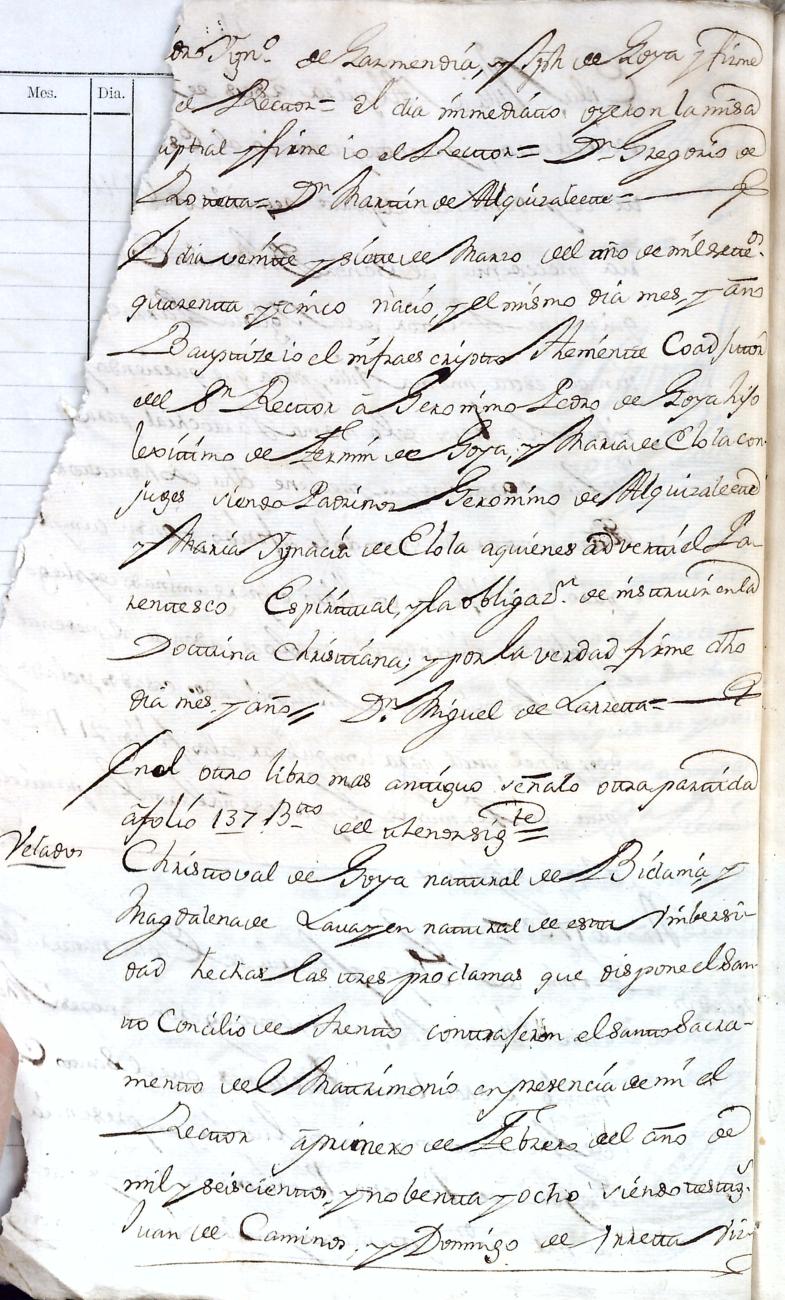 Mes. Dia.
dro Ygn.º de Garmendia, y Jph de Goya y firme
el Rector = el dia immediatto oyeron la misa
nuptial y firme io el Rector = D.n Gregorio de
= D.n Marttin de Alquizalette =
El dia veintte y siette de Marzo del año de mil sette.os
quarentta y cinco nació, y el mismo dia mes, y año
Bauptize io el infraescriptto Theniente Coadjuttor
del S.r Rector â Geronimo Pedro de Goya hijo
lexitimo de Fermin de Goya, y Maria de Elola con-
juges siendo Padrinos Geronimo de Alquizalette
y Maria Ygnacia de Elola aquienes advertti el Pa-
renttesco Espirittual, y la obligaz.n de insttruir en la
Docttrina Christtiana; y por la verdad firme dho
dia mes, y año // D.n Miguel de Larretta =
En el ottro libro mas anttiguo señalo ottra parttida
afolio 137 B.tto del thenor sig.te =
Velados
Christtoval de Goya nattural de Bidania, y
Magdalena de Lauayen nattural de estta Vnibersi-
dad hechas las ttres proclamas que dispone el San-
tto Concilio de Trentto conttrajeron el santto Sacra-
mentto del Mattrimonio en presencia de mi el
Rector â primero de Febrero del año de
mil y seiscienttos, y nobentta y ocho siendo testtig.s
Juan de Caminos, y Domingo de Yrretta